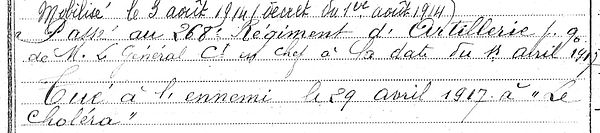 Mobilisé le 3 août 1914 (Décret du 1er août 1914)
Passé au 268e Régiment d'Artillerie p. q.
de M. le Général Ct en chef à la date du 1r avril 1917
Tué à l'ennemi le 29 avril 1917 à "Le
Choléra"